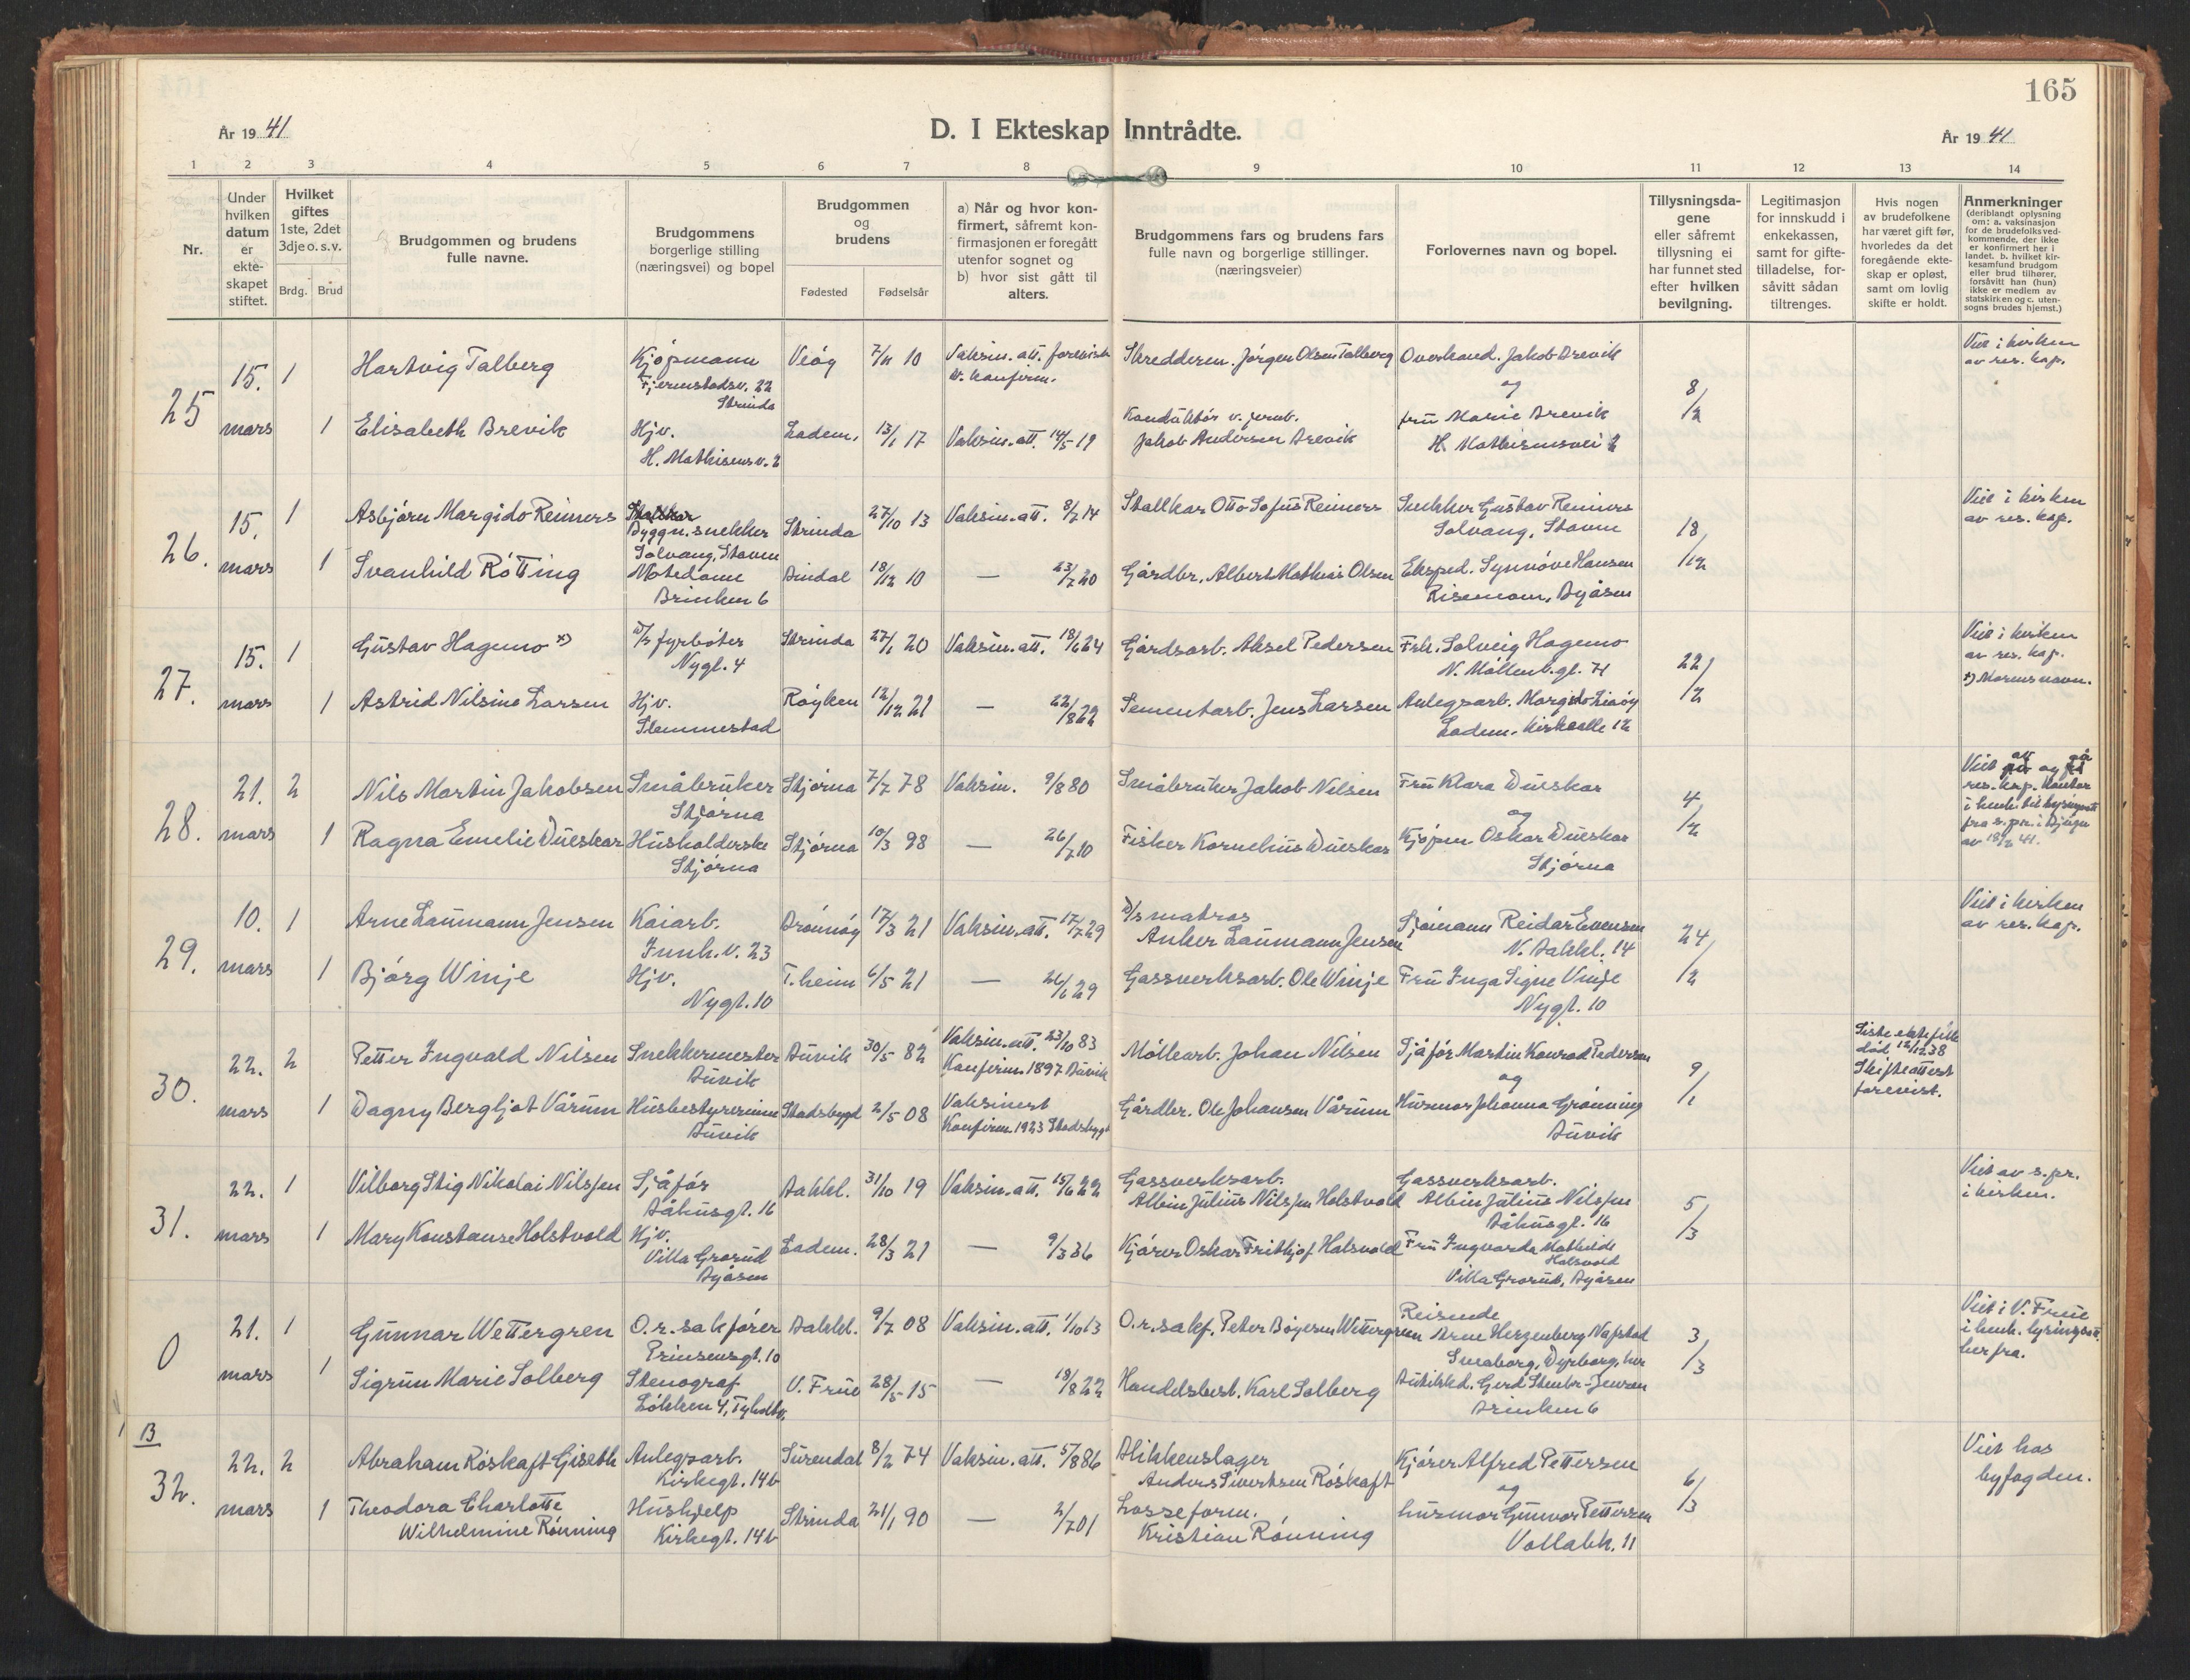 165
År 19 41
D. I Ekteskap Inntrådte.
År 19 41
1 2 3 4 5 6 7 8 9 10 11 12 13 14
Nr.
Under hvilken datum er ekteskapet stiftet.
Hvilket giftes 1ste, 2det 3dje o. s. v.
Brdg. Brud
Brudgommen og brudens fulle navne.
Brudgommens borgerlige stilling (næringsvei) og bopel
Brudgommen og brudens
Fødested Fødselsår
a) Når og hvor konfirmert, såfremt konfirmasjonen er foregått utenfor sognet og
b) hvor sist gått til alters.
Brudgommens fars og brudens fars fulle navn og borgerlige stillinger. (næringsveier)
Forlovernes navn og bopel.
Tillysningsdagene eller såfremt tillysning ei har funnet sted efter hvilken bevilgning.
Legitimasjon for innskudd i enkekassen, samt for giftetilladelse, forsåvitt sådan tiltrenges.
Hvis nogen av brudefolkene har været gift før, hvorledes da det foregående ekteskap er opløst, samt om lovlig skifte er holdt.
Anmerkninger (deriblandt oplysning om: a. vaksinasjon for de brudefolksvedkommende, der ikke er konfirmert her i landet. b. hvilket kirkesamfund brudgom eller brud tilhører, forsåvitt han (hun) ikke er medlem av statskirken og c. utensogns brudes hjemst.)
25 15. mars 1 Hartvig Talberg Kjøpmann Veøy 7/11 10 Vaksin. att. forevist Skredderm. Jørgen Olsen Talberg Overkond. Jakob Brevik 8/2 Viet i kirken
Fjermstadsv. 22 Strinda v. konfirm. og av res. kap.
1 Elisabeth Brevik Hjv. Ladem. 13/1 17 Vaksin. att. 14/5 19 Konduktør v. jernb. fru Marie Brevik
H. Mathisensv. 2 Jakob Andersen Brevik H. Mathisensvei 2
26. 15. mars 1 Asbjørn Margido Reiners Byggn. snekker Strinda 27/10 13 Vaksin. att. 8/7 14 Stallkar Otto Sofus Reiners Snekker Gustav Reiners 18/12 Viet i kirken
Solvang, Stavne Solvang, Stavne av res. kap.
1 Svanhild Røtting Motedame Bindal 18/12 10 — 23/7 20 Gårdbr. Albert Mathias Olsen Eksped. Synnøve Hansen
Brinken 6 Risemoen, Byåsen
27. 15. mars 1 Gustav Hagemo x) D/S fyrbøter Strinda 27/1 20 Vaksin. att. 18/6 24 Gårdsarb. Aksel Pedersen Frk. Solveig Hagemo 22/2 Viet i kirken
Nygt. 4 N. Møllenb.gt. 71 av res. kap.
x) Morens navn.
1 Astrid Nilsine Larsen Hjv. Røyken 12/12 21 — 22/8 22 Sementarb. Jens Larsen Anlegsarb. Margido
Slemmestad Ladem. Kirkealle 12
28. 21. mars 2 Nils Martin Jakobsen Småbruker Stjørna 7/7 78 Vaksin. 9/8 80 Småbruker Jakob Nilsen Fru Klara Dueskar 4/2 Viet av og på
Stjørna og res. kap. kontor
1 Ragna Emelie Dueskar Husholderske Stjørna 10/3 98 — 26/7 10 Fisker Kornelius Dueskar Kjøpm. Oskar Dueskar i henh. til lysingsatt.
Stjørna Stjørna fra s.pr. i Bjugn
av 18/2 41.
29. 10. mars 1 Arne Laumann Jensen Kaiarb. Brønnøy 17/3 21 Vaksin. att. 17/7 29 D/S matros Sjømann Reidar Evensen 24/2 Viet i kirken
Innh. v. 23 Anker Laumann Jensen N. Bakkl. 14 av res. kap.
1 Bjørg Winje Hjv. T.heim 6/5 21 — 26/6 29 Gassverksarb. Ole Winje Fru Inga Signe Vinje
Nygt. 10 Nygt. 10
30. 22. mars 2 Petter Ingvald Nilsen Snekkermester Buvik 30/5 82 Vaksin. att. 23/10 83 Møllearb. Johan Nilsen Sjåfør Martin Konrad Pedersen 9/1 Siste ektefelle
Buvik Konfirm. 1897 Buvik og død 12/12 38
1 Dagny Bergljot Vårum Husbestyrerinne Stadsbygd 2/5 08 Vaksinert Gårdbr. Ole Johansen Vårum Husmor Johanna Grønning Skifteattest
Buvik Konfirm. 1923 Stadsbygd Buvik forevist.
31. 22. mars 1 Vilborg Stig Nikolai Nilssen Sjåfør Bakkl. 31/10 19 Vaksin. att. 15/6 22 Gassverksarb. Gassverksarb. 5/3 Viet av s.pr.
Båhusgt. 16 Albin Julius Nilssen Holstvold Albin Julius Nilssen i kirken.
Båhusgt. 16
1 Mary Konstanse Holstvold Hjv. Ladem. 28/3 21 — 9/3 36 Kjører Oskar Frithjof Holsvold Fru Ingvarda Mathilde
Villa Grorud Holsvold
Byåsen Villa Grorud, Byåsen
0 21. mars 1 Gunnar Wettergren O.r. sakfører Bakkl. 9/7 08 Vaksin. att. 1/10 13 O.r. sakf. Peter Bøyesen Wettergren Reisende 3/3 Viet i V. Frue
Prinsensgt. 10 Arne Herzenberg Nafstad i henh. lysingsatt.
Dyrborg, her herfra.
1 Sigrun Marie Solberg Stenograf V. Frue 28/5 15 — 19/8 22 Handelsbest. Karl Solberg Butikkd. Gerd Stenbr-Jensen
Løkken 4, Tyholtv. Brinken 6
B
32. 22. mars 2 Abraham Røskaft Giseth Anlegsarb. Surendal 8/2 74 Vaksin. att. 5/8 86 Blikkenslager Kjører Alfred Pettersen 6/3 Viet hos
Kirkegt. 14b Anders Sivertsen Røskaft og byfogden.
1 Theodora Charlotte Hushjelp Strinda 21/1 90 — 2/7 01 Losseform. husmor Gunvor Pettersen
Wilhelmine Rønning Kirkegt. 14b Kristian Rønning Vollabk. 11